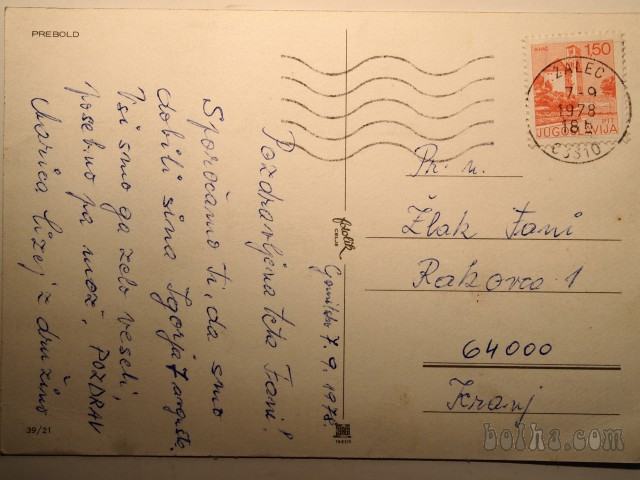 PREBOLD
Gomilsko 7. 9. 1978.
Pozdravljena teta Fani!
Sporočamo ti, da smo
dobili sina Igorja 7 avgusta.
Vsi smo ga zelo veseli,
posebno pa mož. POZDRAV
Marica z družino
39/21
fotolik
CELJE
1.50
JUGOSLAVIJA
PTT
ŽALEC
7-9
1978
18 h
63310
Žlak Fani
Rakovca 1
64000
Kranj
bolha.com